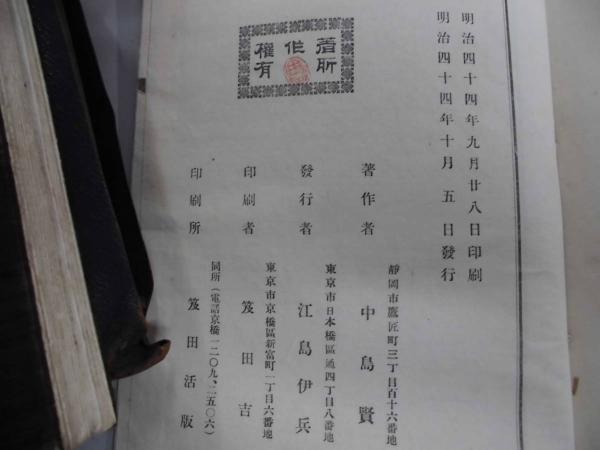 明治四十四年九月廿八日印刷
明治四十四年十月五日發行
著作所權有
著作者
靜岡市鷹匠町三丁目百十六番地
中島賢
發行者
東京市日本橋區通四丁目八番地
江島伊兵
印刷者
東京市京橋區新富町一丁目六番地
笈田吉
印刷所
同所(電話京橋一二〇九、二五〇六)
笈田活版